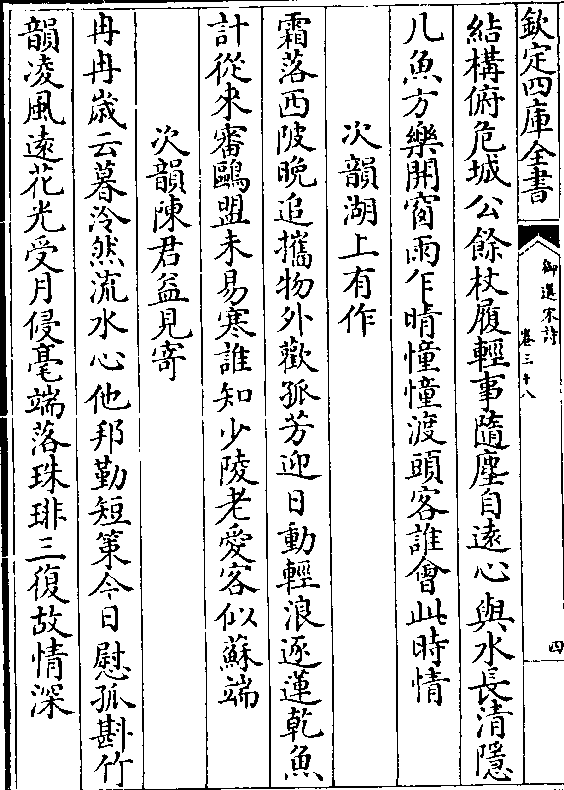 欽定四庫全書
御選宋詩
卷三十八
四
結構俯危城公餘杖履輕事隨塵自遠心與水長清隱
几魚方樂開窗雨乍晴憧憧渡頭客誰會此時情
次韻湖上有作
霜落西陂晚追攜物外歡孤芳迎日動輕浪逐蓮乾魚
計從來審鷗盟未易寒誰知少陵老愛客似蘇端
次韻陳君益見寄
冉冉歳云暮泠然流水心他邦勤短策今日慰孤斟竹
韻凌風遠花光受月侵毫端落珠琲三復故情深